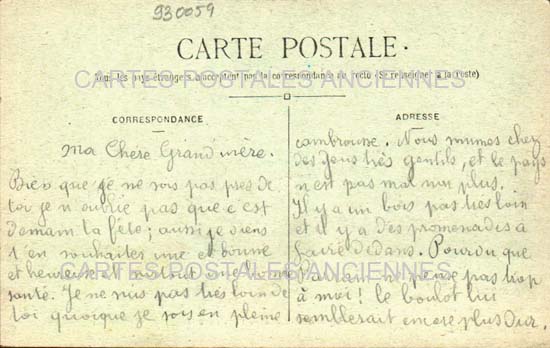 930059
CARTE POSTALE.
Tous les pays étrangers n'acceptent pas la correspondance au recto (Se renseigner à la Poste)
CARTES POSTALES ANCIENNES
CORRESPONDANCE
ma Chère Grand'mère.
Bien que je ne sois pas près de
toi je n'oublie pas que c'est
demain ta fête; aussi je viens
t'en souhaiter une bonne
et heureuse et surtout une bonne
santé. Je ne suis pas très loin de
toi quoique je sois en pleine
ADRESSE
cambrouse. Nous sommes chez
des gens très gentils, et le pays
n'est pas mal non plus.
Il y a un bois pas très loin
et il y a des promenades à
faire dedans. Pourvu que
Maman ne pense pas trop
à moi! le boulot lui
semblerait encore plus dur.
CARTES POSTALES ANCIENNES